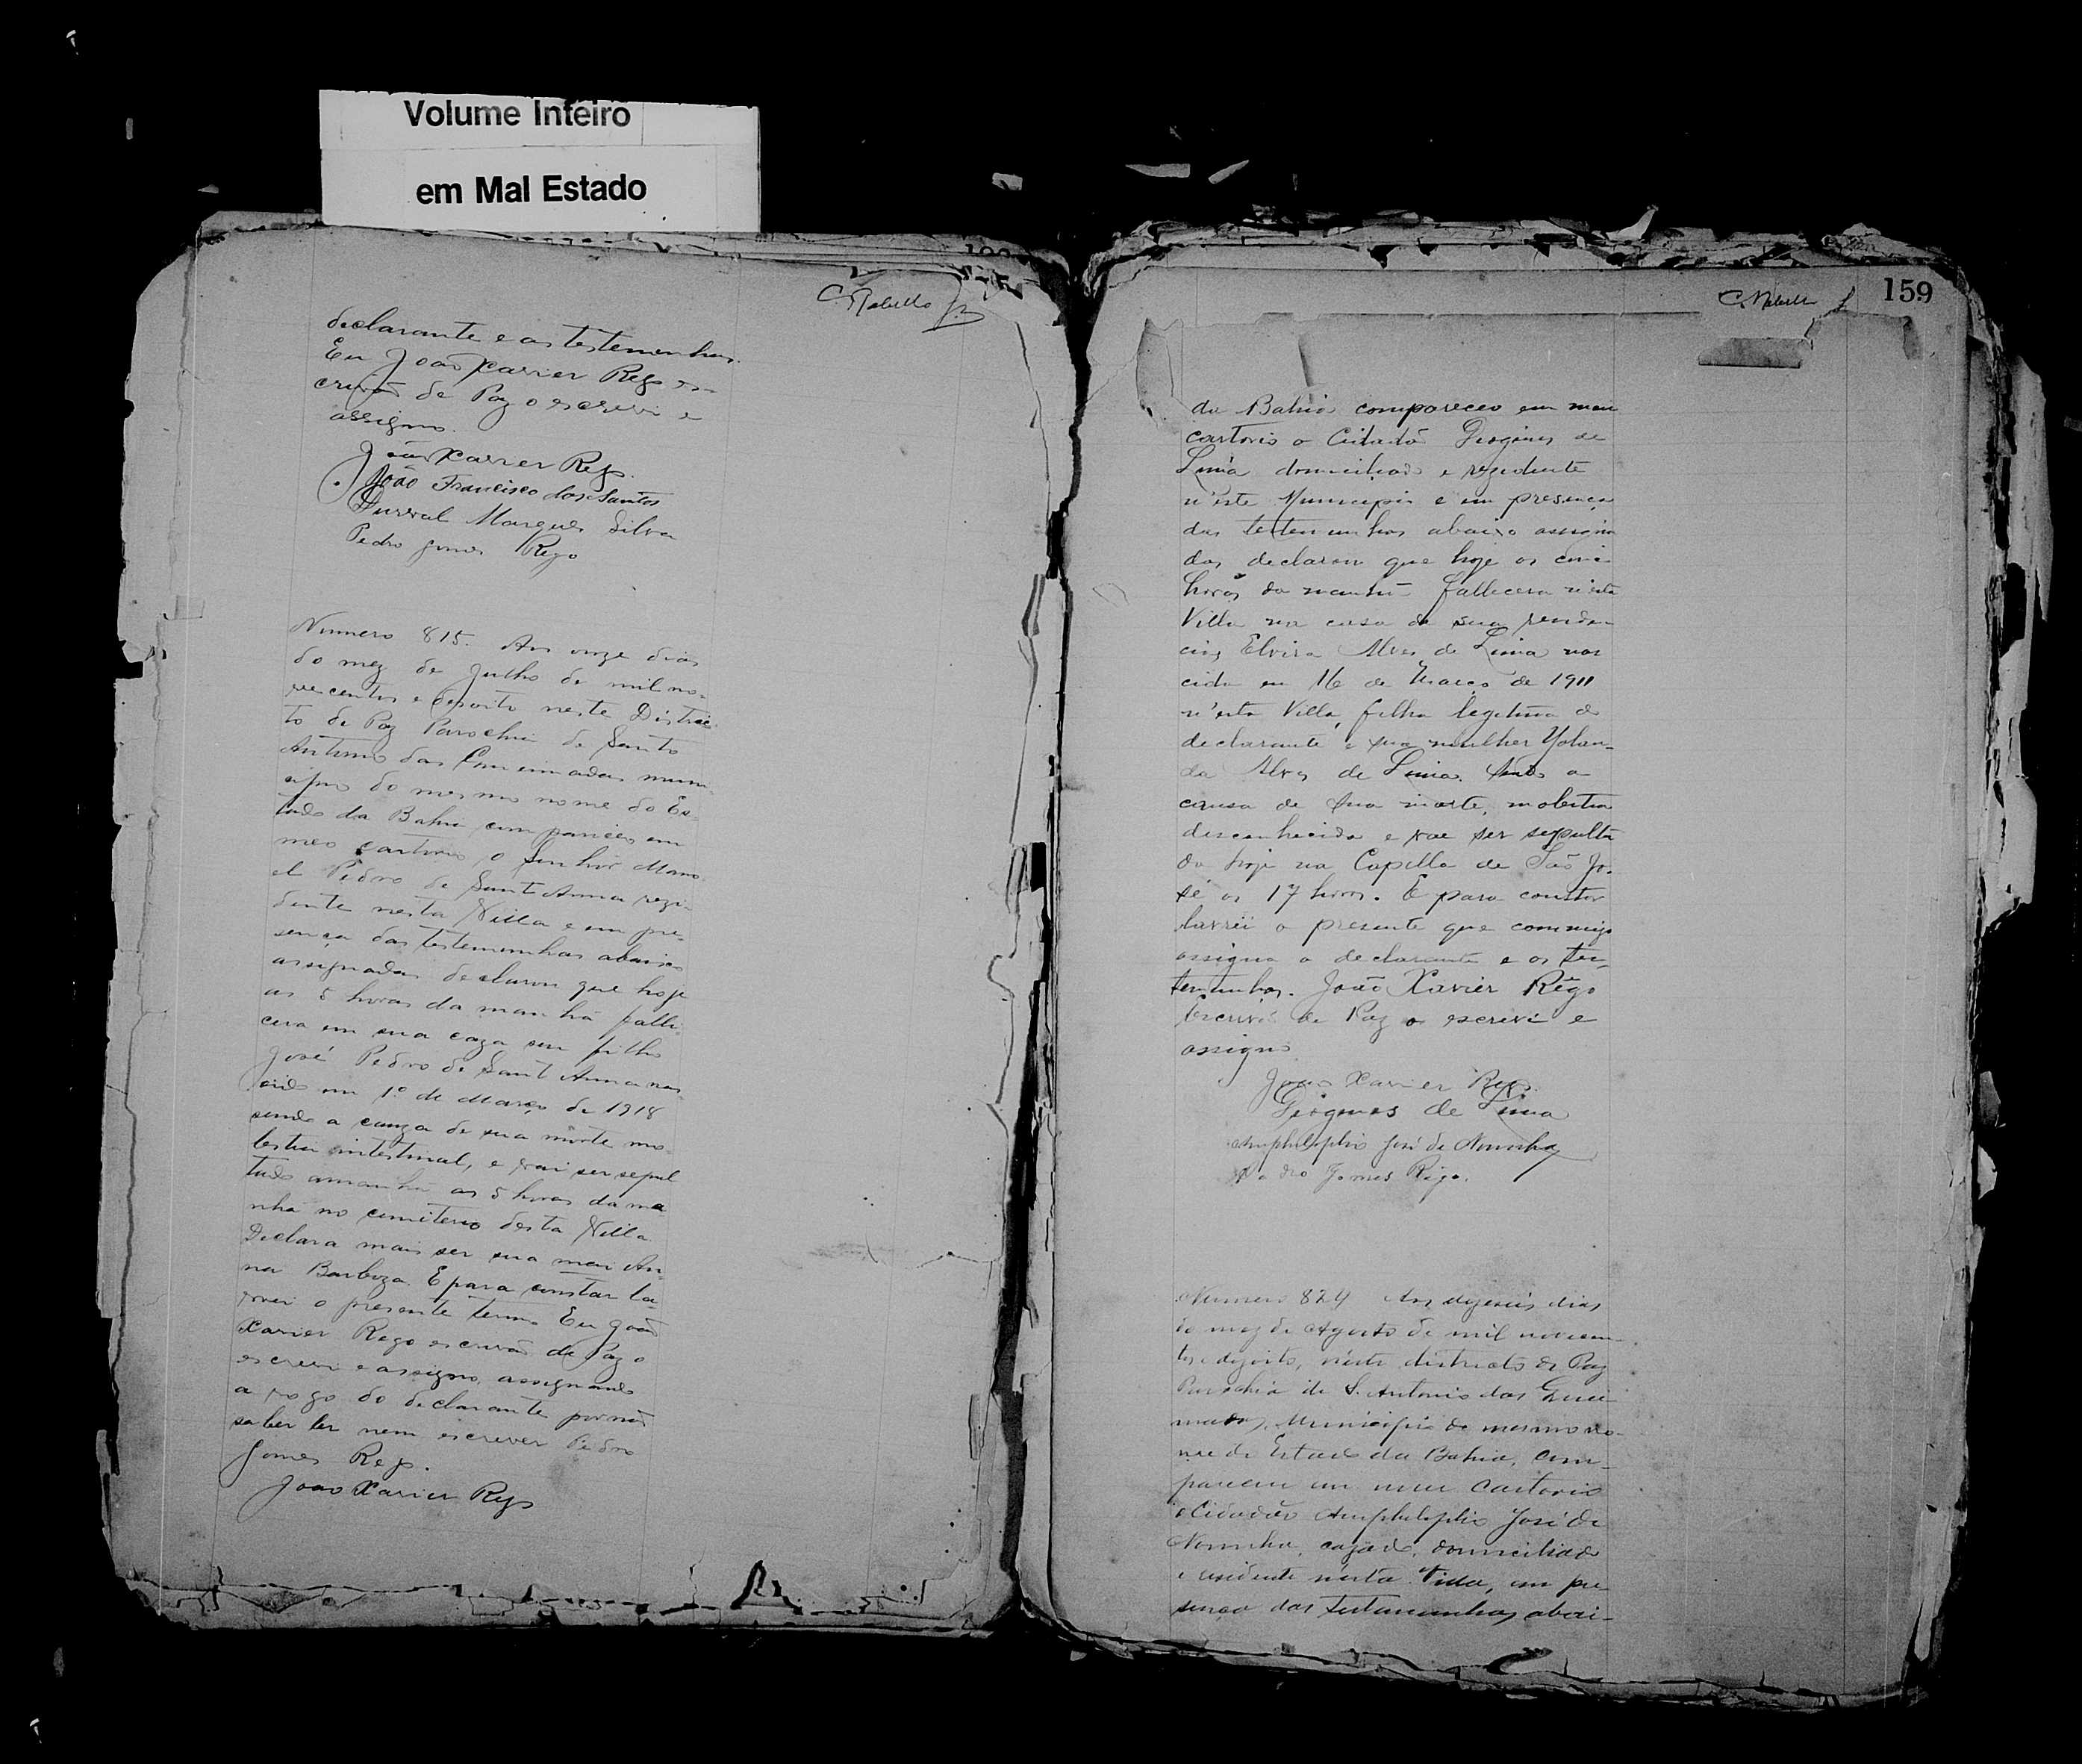 Volume Inteiro
em Mal Estado
C. Rabello
declarante e as testemunhas.
Eu João Xavier Rego es-
crivão de Paz o escrevi e
assigno.
João Xavier Rego.
João Francisco dos Santos
Durval Marques Silva
Pedro Gomes Rego
Numero 815. Aos onze dias
do mez de Julho de mil no-
vecentos e desoito neste Distric-
to de Paz Parochia de Santo
Antonio das Queimadas muni-
cipio do mesmo nome do Es-
tado da Bahia compareceu em
meo cartorio o Senhor Mano-
el Pedro de Sant Anna rezi-
dente nesta Villa e em pre-
sença das testemunhas abaixo
assignadas declarou que hoje
as 5 horas da manhã falle-
cera em sua caza seu filho
José Pedro de Sant Anna nas-
cido em 1º de Março de 1918
sendo a cauza de sua morte mo-
lestia intestinal, e vai ser sepul
tado amanhã as 5 horas da ma
nhã no cemiterio desta Villa.
Declara mais ser sua mai An-
na Barboza. E para constar la-
vrei o presente termo Eu João
Xavier Rego escrivão de Paz o
escrevi e assigno, assignando
a rogo do declarante por não
saber ler nem escrever Pedro
Gomes Rego.
João Xavier Rego
C. Rabello
159
da Bahia compareceo em meu
cartorio o Cidadão Diogenes de
Lima domiciliado e rezidente
n'este Municipio e em presença
das testemunhas abaixo assigna
das declarou que hoje as cinco
horas da manhã fallecera n'esta
Villa na casa de sua residen-
cia, Elvira Alves de Lima nas
cida em 16 de Março de 1911
n'esta Villa, filha legitima do
declarante e sua mulher Yolan-
da Alves de Lima. Sendo a
causa de sua morte, molestia
desconhecida e vae ser sepulta
da hoje na Capella de São Jo-
sé as 17 horas. E para constar
lavrei o presente que commigo
assigna o declarante e as tes-
temunhas. João Xavier Rêgo
Escrivão de Paz o escrevi e
assigno
João Xavier Rego.
Diogenes de Lima
Amphilophio José de Noronha
Pedro Gomes Rego.
Numero 824 Aos dezeseis dias
do mez de Agosto de mil novecen-
tos e dezoito, n'este districto de Paz
Parochia de S. Antonio das Quei
madas, Municipio do mesmo no-
me do Estado da Bahia, com-
pareceu em meu cartorio
o Cidadão Amphilophio José de
Noronha, cazado, domiciliado
e residente n'esta Villa, em pre
sença das testemunhas abai-